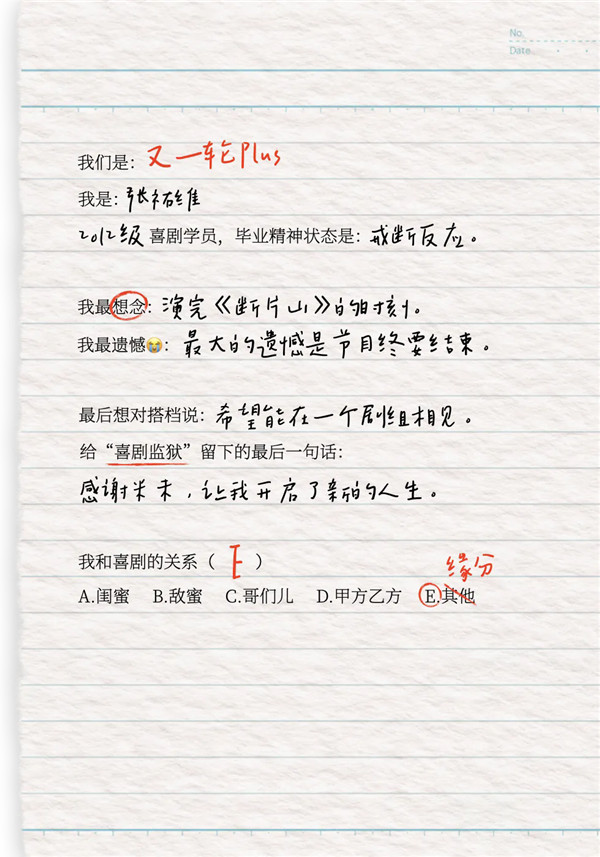 No.
Date
我们是：又一轮Plus
我是：张祐维
2012级 喜剧学员，毕业精神状态是：戒断反应。
我最想念：演完《断片山》的时刻。
我最遗憾😭：最大的遗憾是节目终要结束。
最后想对搭档说：希望能在一个剧组相见。
给“喜剧监狱”留下的最后一句话：
感谢米未，让我开启了新的人生。
我和喜剧的关系（ E ）
缘分
A.闺蜜 B.敌蜜 C.哥们儿 D.甲方乙方 E.其他